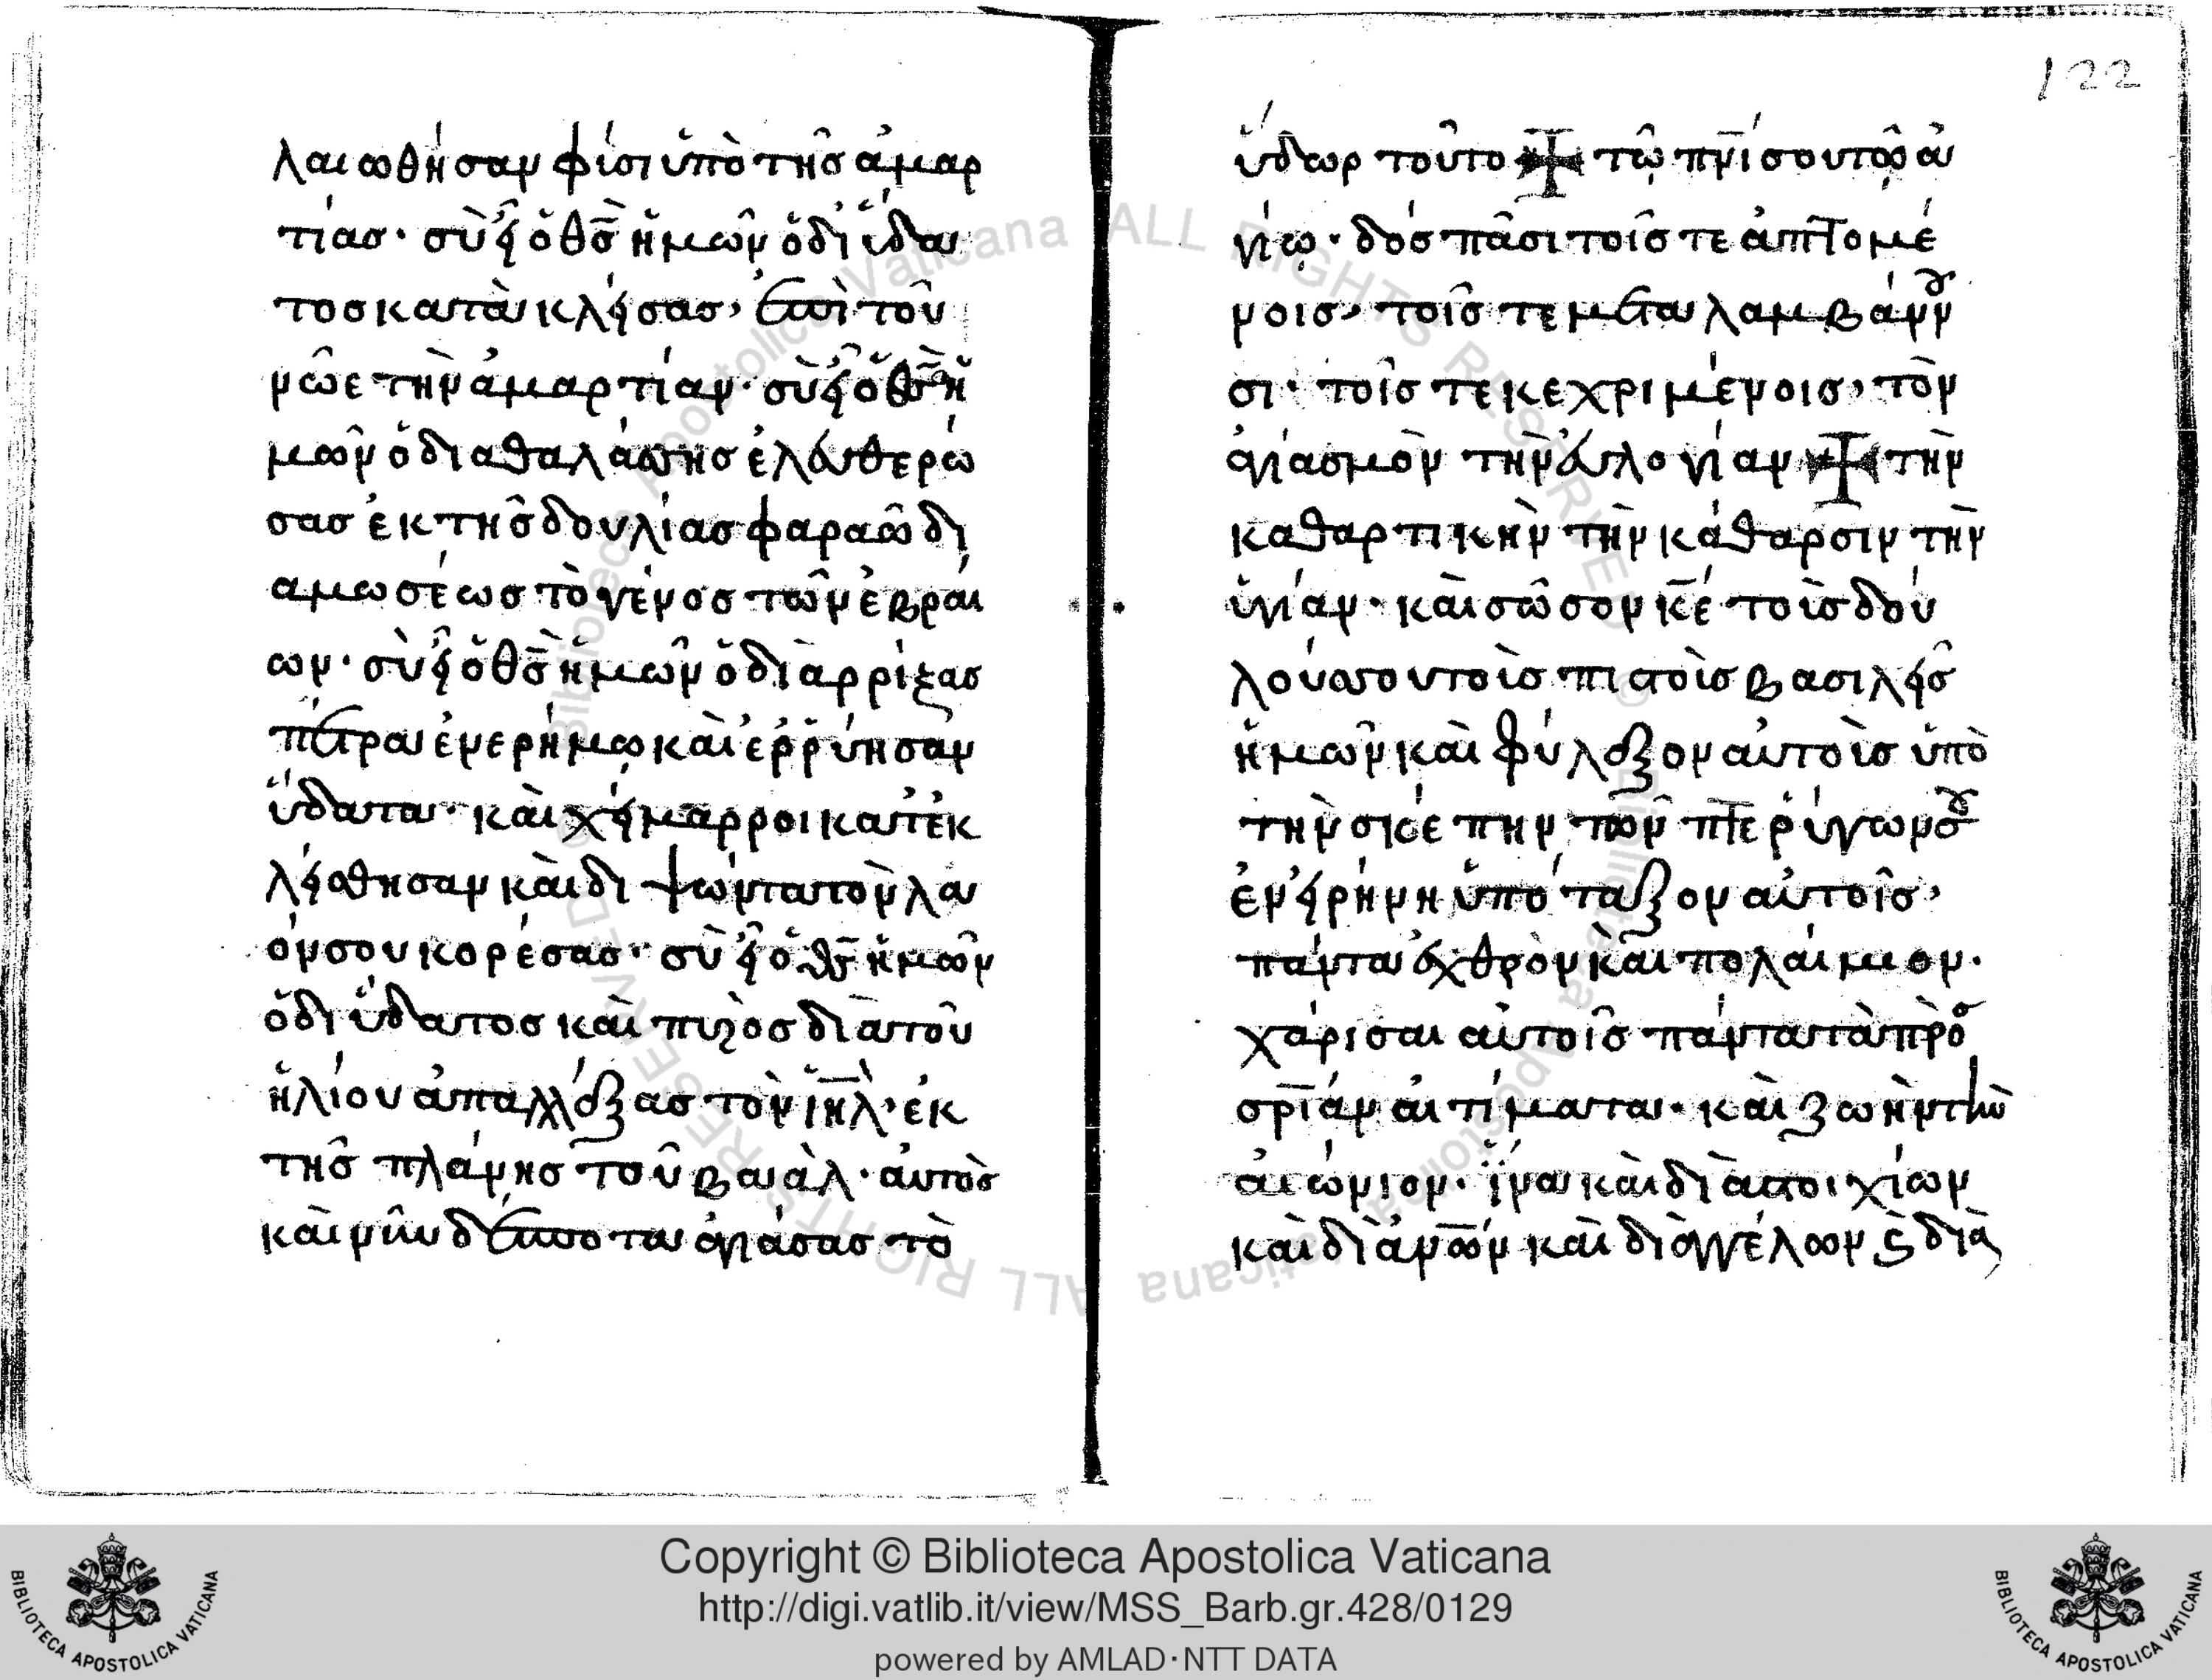 λαιωθήσαν φίσι ὑπὸ τῆς ἁμαρ
τίας· σὺ εἶ ὁ θς̅ ἡμῶν ὁ δι ὕδα
τος κατακλείσας, ἐπὶ τοῦ
νῶε τὴν ἁμαρτίαν· σὺ εἶ ὁ θς̅ ἡ
μῶν ὁ δια θαλάσσης ἐλευθερώ
σας ἐκ τῆς δουλίας φαραῶ δι
α μωσέως τὸ γένος τῶν ἑβραί
ων· σὺ εἶ ὁ θς̅ ἡμῶν ὁ διαρρίξας
πέτρα ἐν ερήμω καὶ ἐρρύησαν
ὕδατα· καὶ χείμαρροι κατεκ
λείσθησαν καὶ διψώντα τὸν λα
όν σου κορέσας· σὺ εἶ ὁ θς̅ ἡμῶν
ὁ δι ὕδατος καὶ πυρὸς διὰ τοῦ
ἡλίου ἀπαλλάξας τὸν ιη̅λ· ἐκ
τῆς πλάνης τοῦ βαάλ· αὐτὸς
καὶ νῦν δέσποτα ἁγιάσας τὸ
122
ὕδωρ τοῦτο ✠ τῶ πνι̅ σου τῶ ἁ
γίω· δός πᾶσι τοῖς τε ἁπτομέ
νοις, τοῖς τε μεταλαμβάνου
σι· τοῖς τε κεχριμένοις, τὸν
ἁγιασμὸν τὴν εὐλογίαν ✠ τὴν
καθαρτικὴν τὴν κάθαρσιν τὴν
ὑγίαν· καὶ σῶσον κε̅ τοὶς δού
λούς σου τοὶς πιστοὶς βασιλεῖς
ἡμῶν καὶ φύλαξον αὐτοὶς ὑπὸ
τὴν σκέπην τῶν πτερύγων σου
ἐν εἰρήνη ὑπόταξον αὐτοῖς,
πάντα ἐχθρὸν καὶ πολαίμιον·
χάρισαι αὐτοῖς πάντα τὰ πρὸς
σρι̅άν αιτίματα· καὶ ζωὴν τὴν
αἰώνιον· ἵνα καὶ διὰ στοιχίων
καὶ διὰ ἀνω̅ν καὶ διὰ ἀγγέλων ϗ διὰ
Copyright © Biblioteca Apostolica Vaticana
http://digi.vatlib.it/view/MSS_Barb.gr.428/0129
powered by AMLAD·NTT DATA
BIBLIOTECA APOSTOLICA VATICANA
BIBLIOTECA APOSTOLICA VATICANA